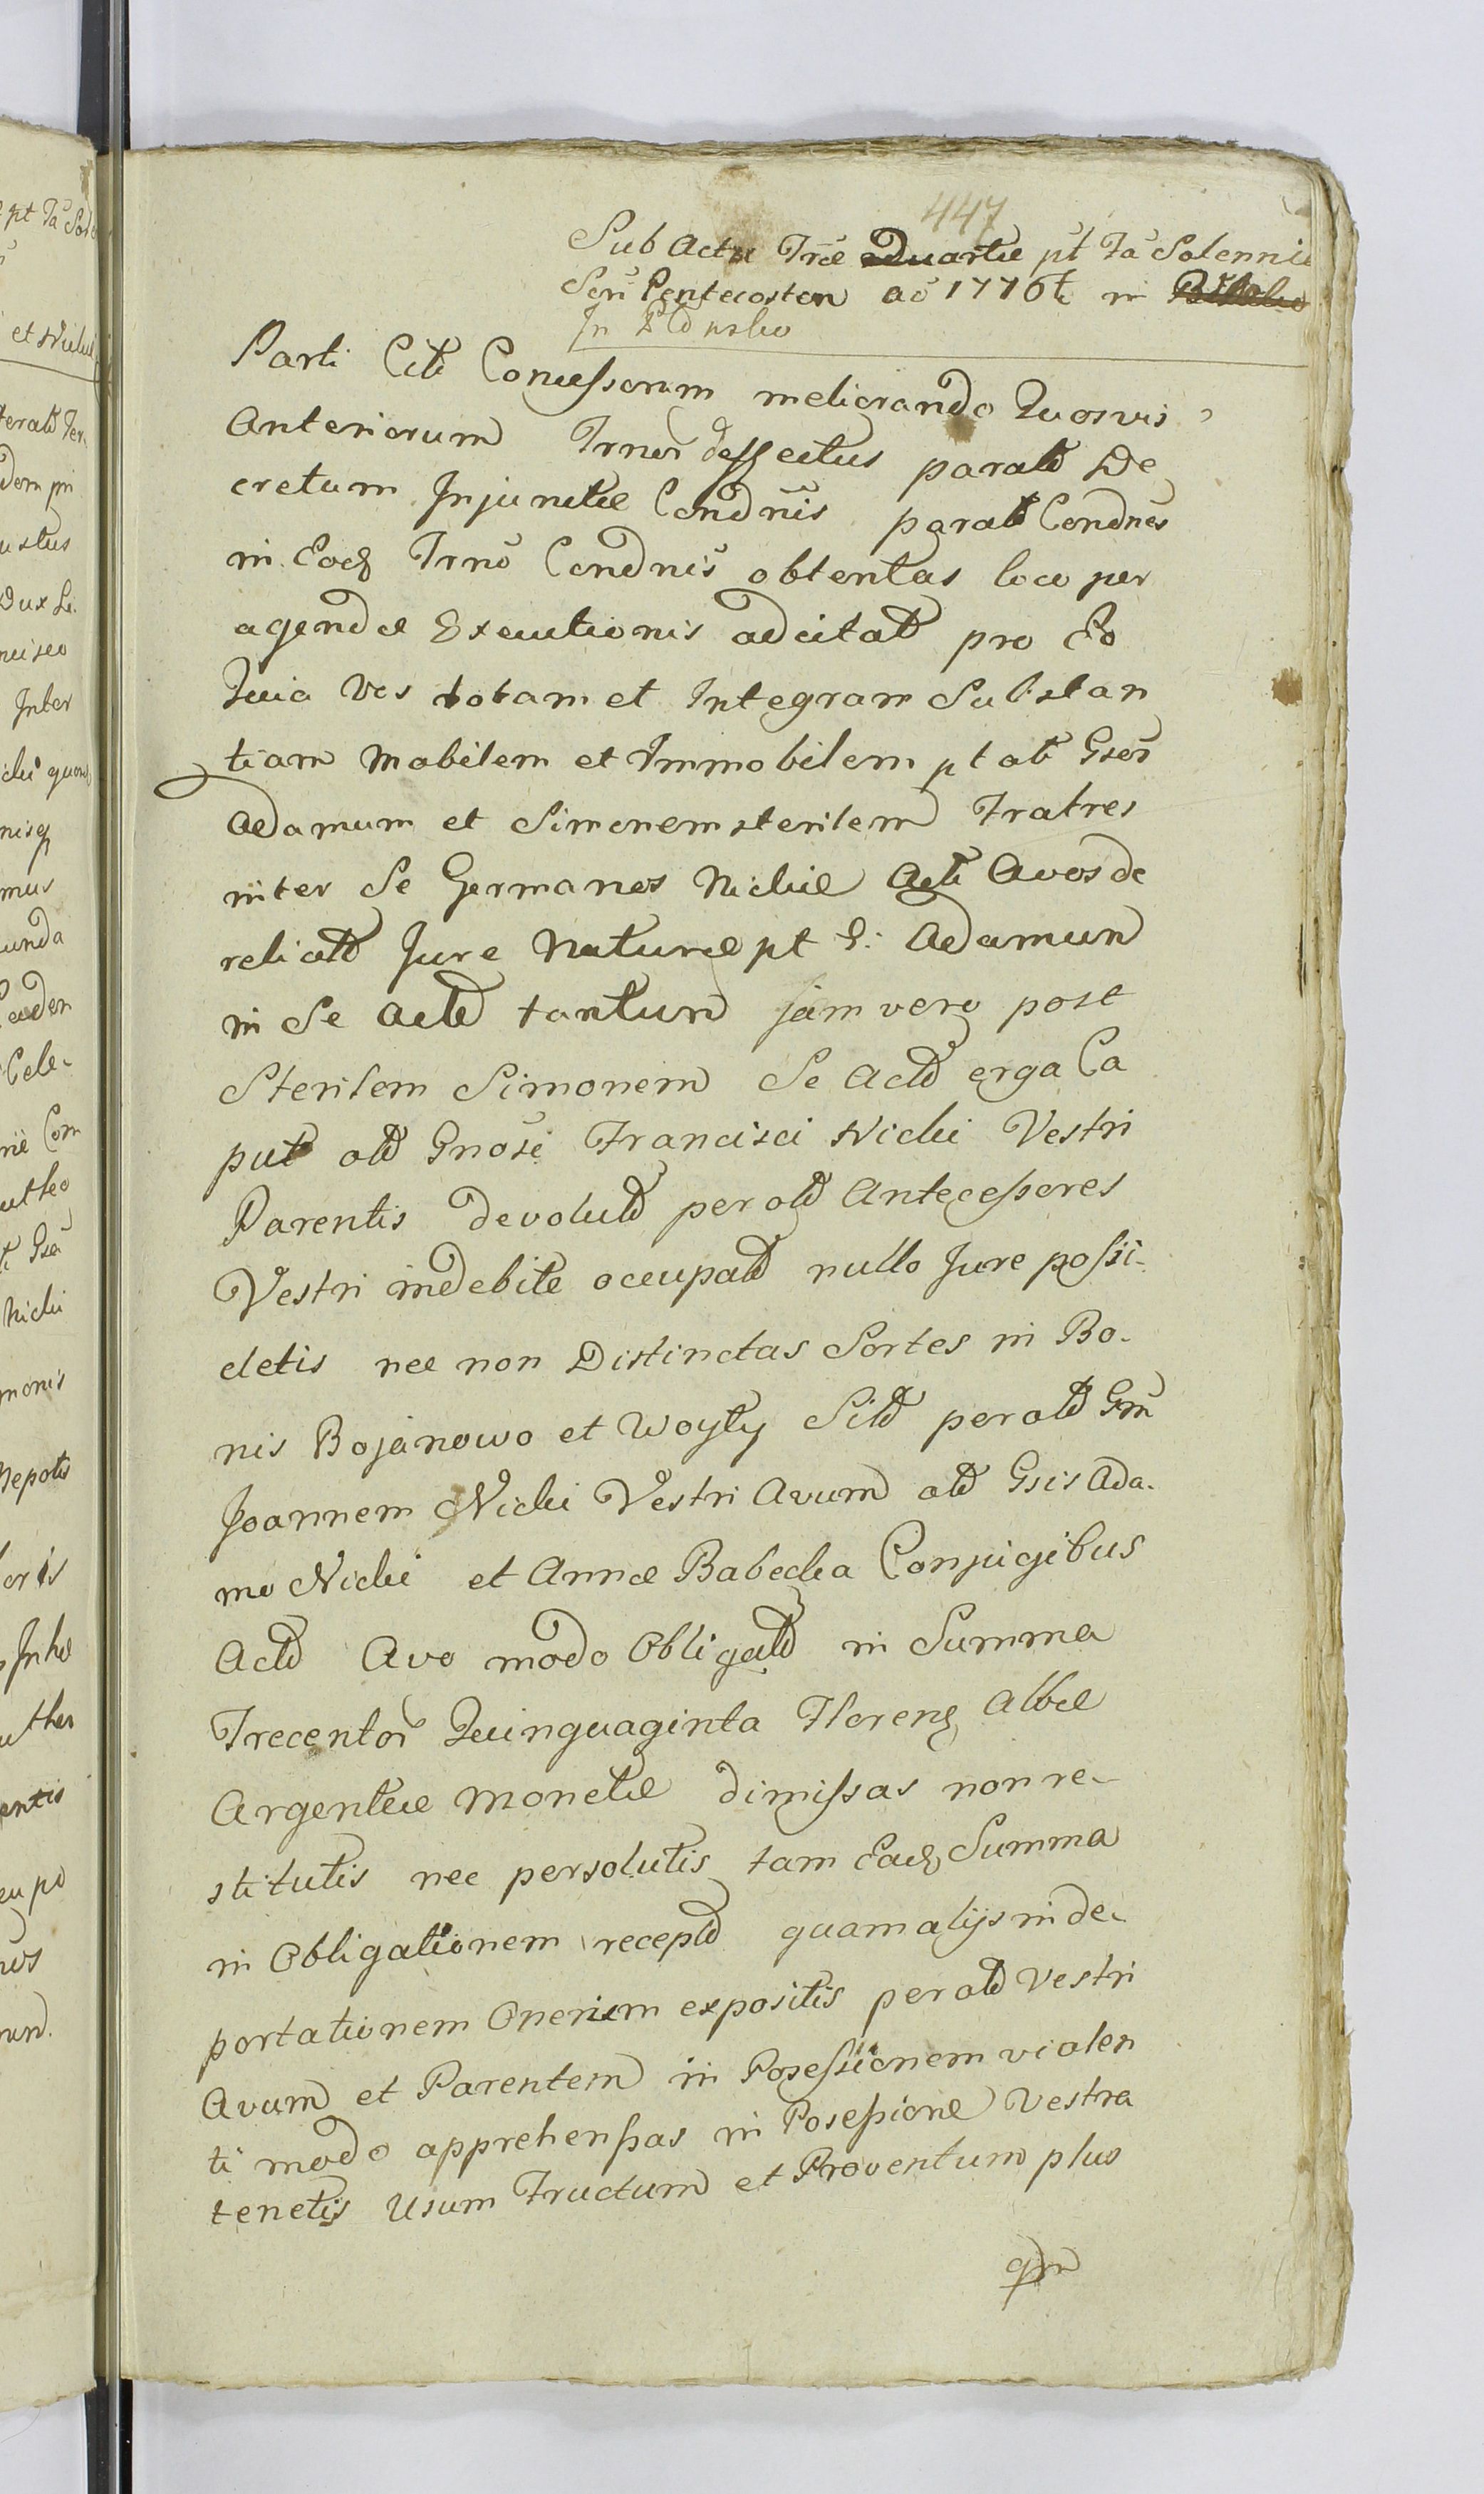 447
Sub Actu Fræ Quartæ pt Fã Solennia
Sen Pentecosten aõ 1776 in
In Płońsko
Parti Citi Concessorum meliorando Quosvis
Anteriorum Trnor deffectus parat De
cretum Injunctæ Condnis parat Condnes
in Eod Trno Condnis obtentas loco per
agendæ Executionis adcitat pro Eo
Quia Vos totam et Integram Substan
tiam Mobilem et Immobilem pt ab Gsos
Adamum et Simonem sterilem Fratres
inter Se Germanos Nickie Acti Avos de
relict Jure Naturæ pt G: Adamum
in Se Actd tantum jam vero post
Sterilem Simonem Se Actd erga Ca
put old Gnosi Francisci Nicki Vestri
Parentis devolutd per old Antecessores
Vestri indebite occupatd nullo Jure possi-
detis nec non Distinctas Sortes in Bo-
nis Bojanowo et Woyty Sitd per old Gm
Joannem Nicki Vestri Avum old Gsis Ada-
mo Nicki et Annæ Babecka Conjugibus
Actd Avo modo Obligatd in Summa
Trecentor Quinquaginta Floren Albæ
Argenteæ Monetæ dimissas non re-
stitutis nec persolutis tam Ead Summa
in Obligationem receptd quam alijs in de-
portationem Onerum expositis per old Vestri
Avum et Parentem in Posessionem violen
ti modo apprehensas in Posessione Vestra
tenetis Usum Fructum et Proventum plus
qm